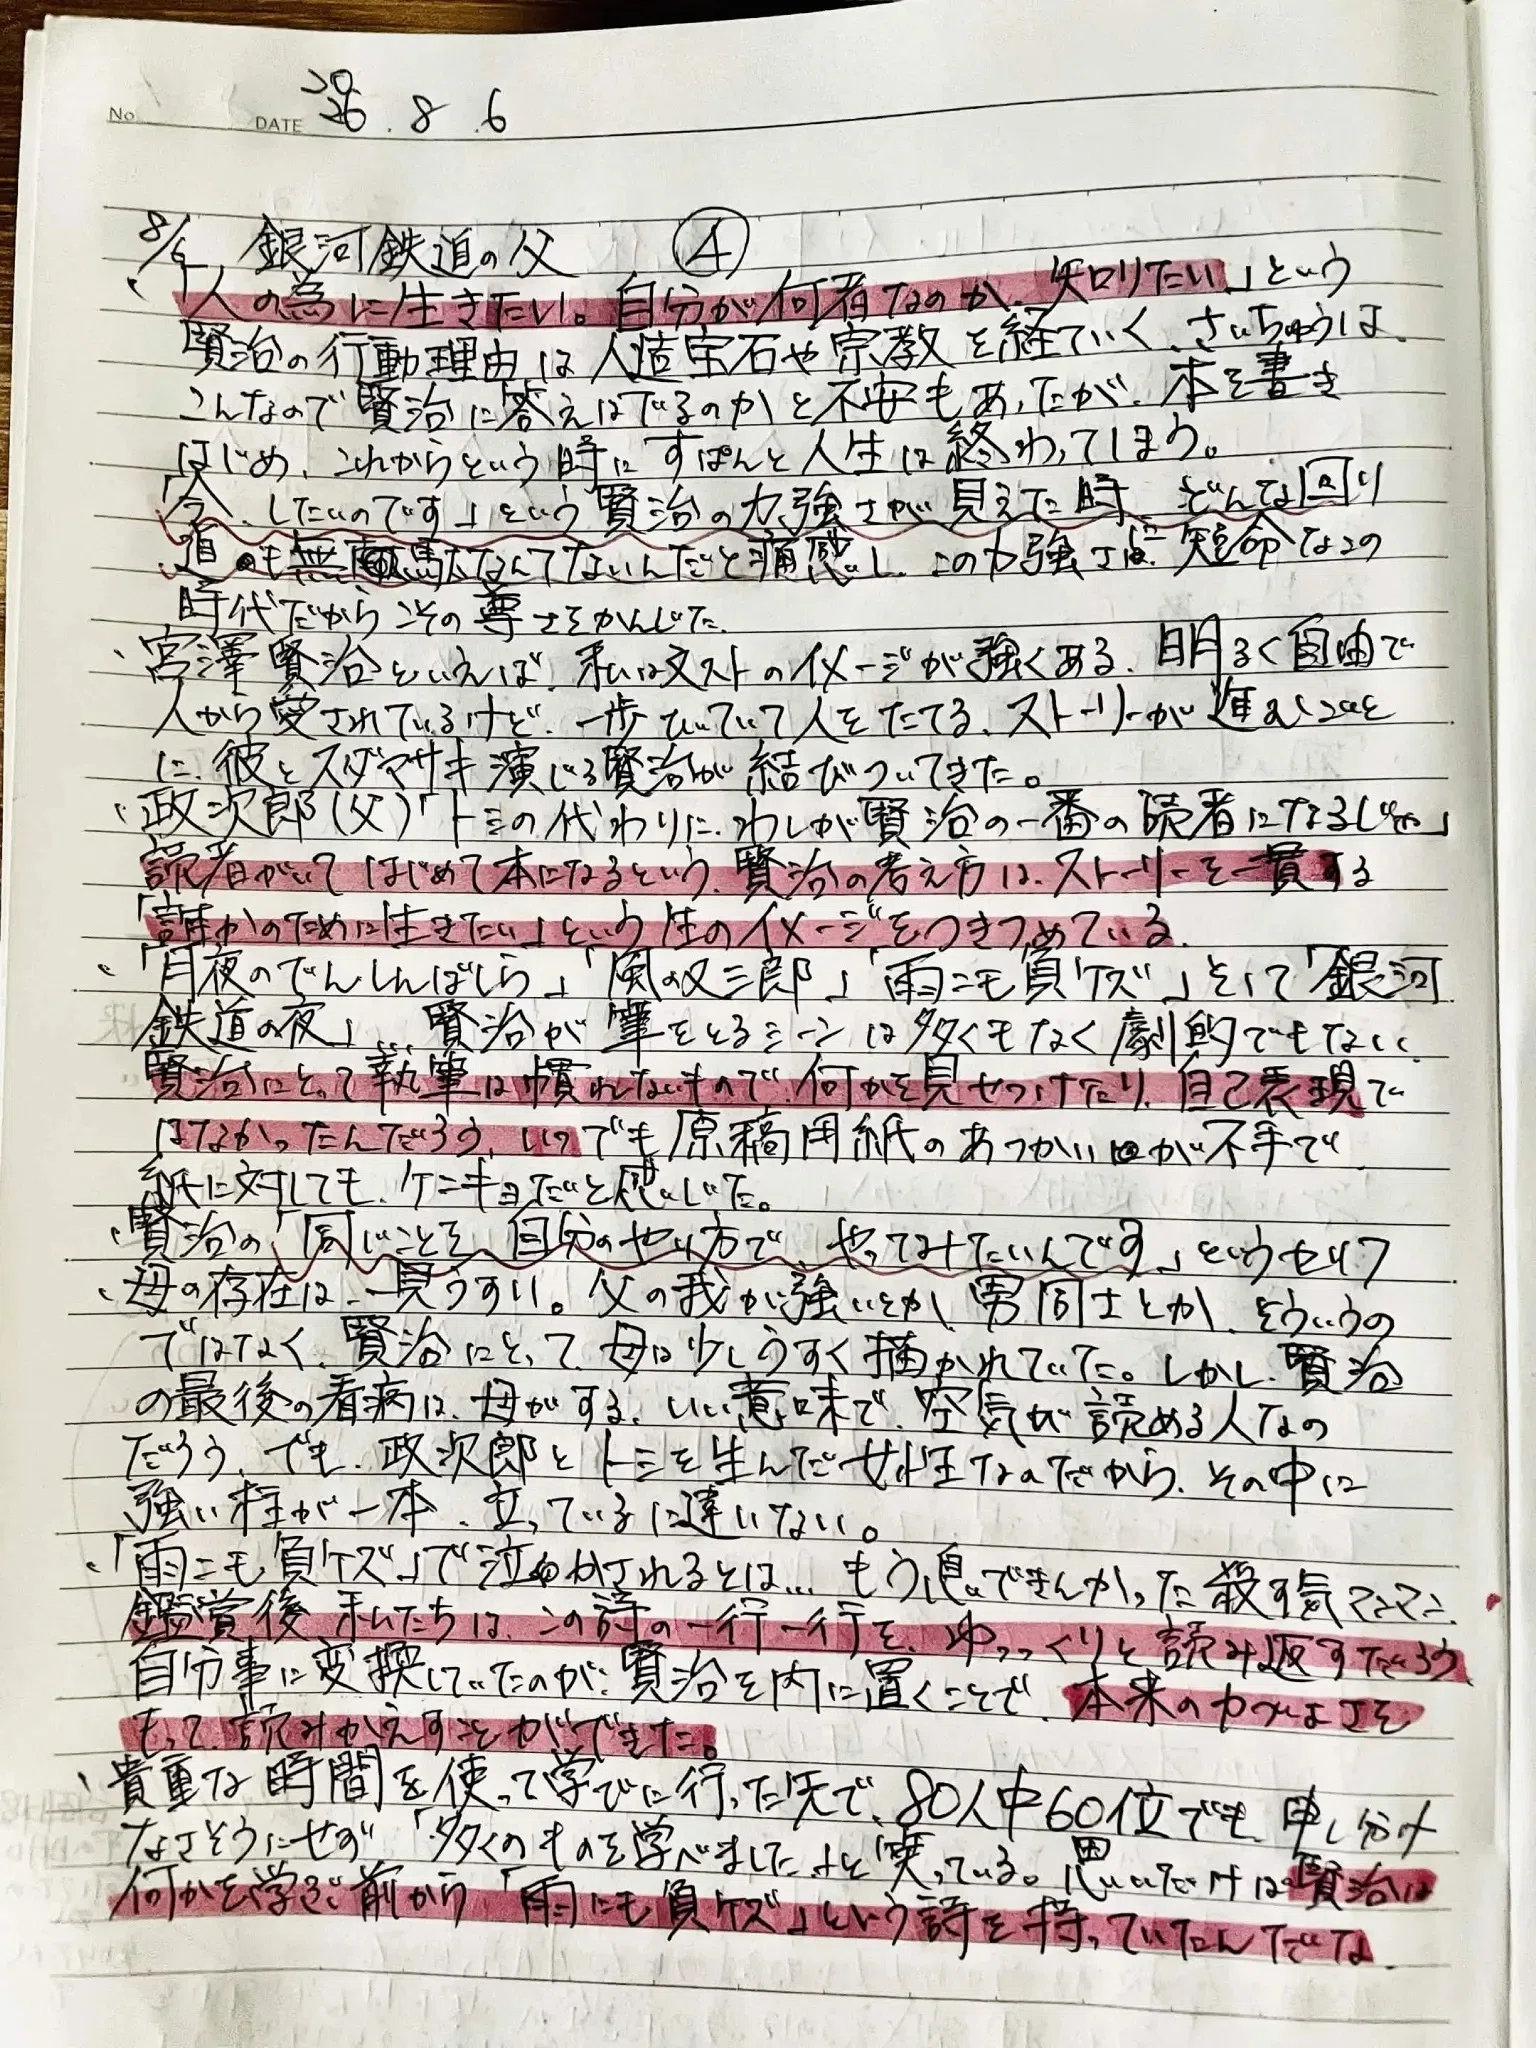 No
DATE 2026.8.6
8/6 銀河鉄道の父 ④
・「人の為に生きたい。自分が何者なのか、知りたい」という
賢治の行動理由は人造宝石や宗教を経ていく、さいちゅうは、
こんなので賢治に答えはでるのかと不安もあったが、本を書き
はじめ、これからという時にすぽんと人生は終わってしまう。
「今、したいのです」という賢治の力強さが見えた時、どんな回り
道も無駄なんてないんだと痛感し、この力強さは、短命なこの
時代だからこその尊さをかんじた。
、宮澤賢治といえば、私は文ストのイメージが強くある、明るく自由で
人から愛されているけど、一歩ひいていて人をたてる、ストーリーが進むごと
に、彼とスダマサキ演じる賢治が結びついてきた。
、政次郎(父)「トミの代わりに、わしが賢治の一番の読者になるじゃ」
読者がいてはじめて本になるという、賢治の考え方は、ストーリーを一貫する
「誰かのために生きたい」という生のイメージをつきつめている。
、「月夜のでんしんばしら」「風の又三郎」「雨ニモ負ケズ」そして「銀河
鉄道の夜」…、賢治が筆をとるシーンは多くもなく劇的でもない、
賢治にとって執筆は慣れないもので、何かを見せつけたり、自己表現で
はなかったんだろう、いつでも原稿用紙のあつかいが不手で、
紙に対しても、ケンキョだと感じた。
、賢治の「同じことを自分のやり方で、やってみたいんです」というセリフ
、母の存在は、一見うすい。父の我が強いとか、男同士とか、そういうの
ではなく、賢治にとって、母は少しうすく描かれていた。しかし、賢治
の最後の看病は、母がする、いい意味で、空気が読める人なの
だろう、でも、政次郎とトミを生んだ女性なのだから、その中に
強い柱が一本、立っているに違いない。
、「雨ニモ負ケズ」で泣かされるとは… もう息できんかった 殺す気マンマン、
鑑賞後、私たちは、この詩の一行一行を、ゆっっくりと読み返すだろう
自分事に変換していたのが、賢治を内に置くことで、本来の力づよさを
もって、読みかえすことができた。
、貴重な時間を使って学びに行った先で、80人中60位でも、申し分け
なさそうにせず「多くのものを学べました」と笑っている。思いだけは賢治は
何かを学ぶ前から「雨にも負ケズ」という詩を持っていたんだな、